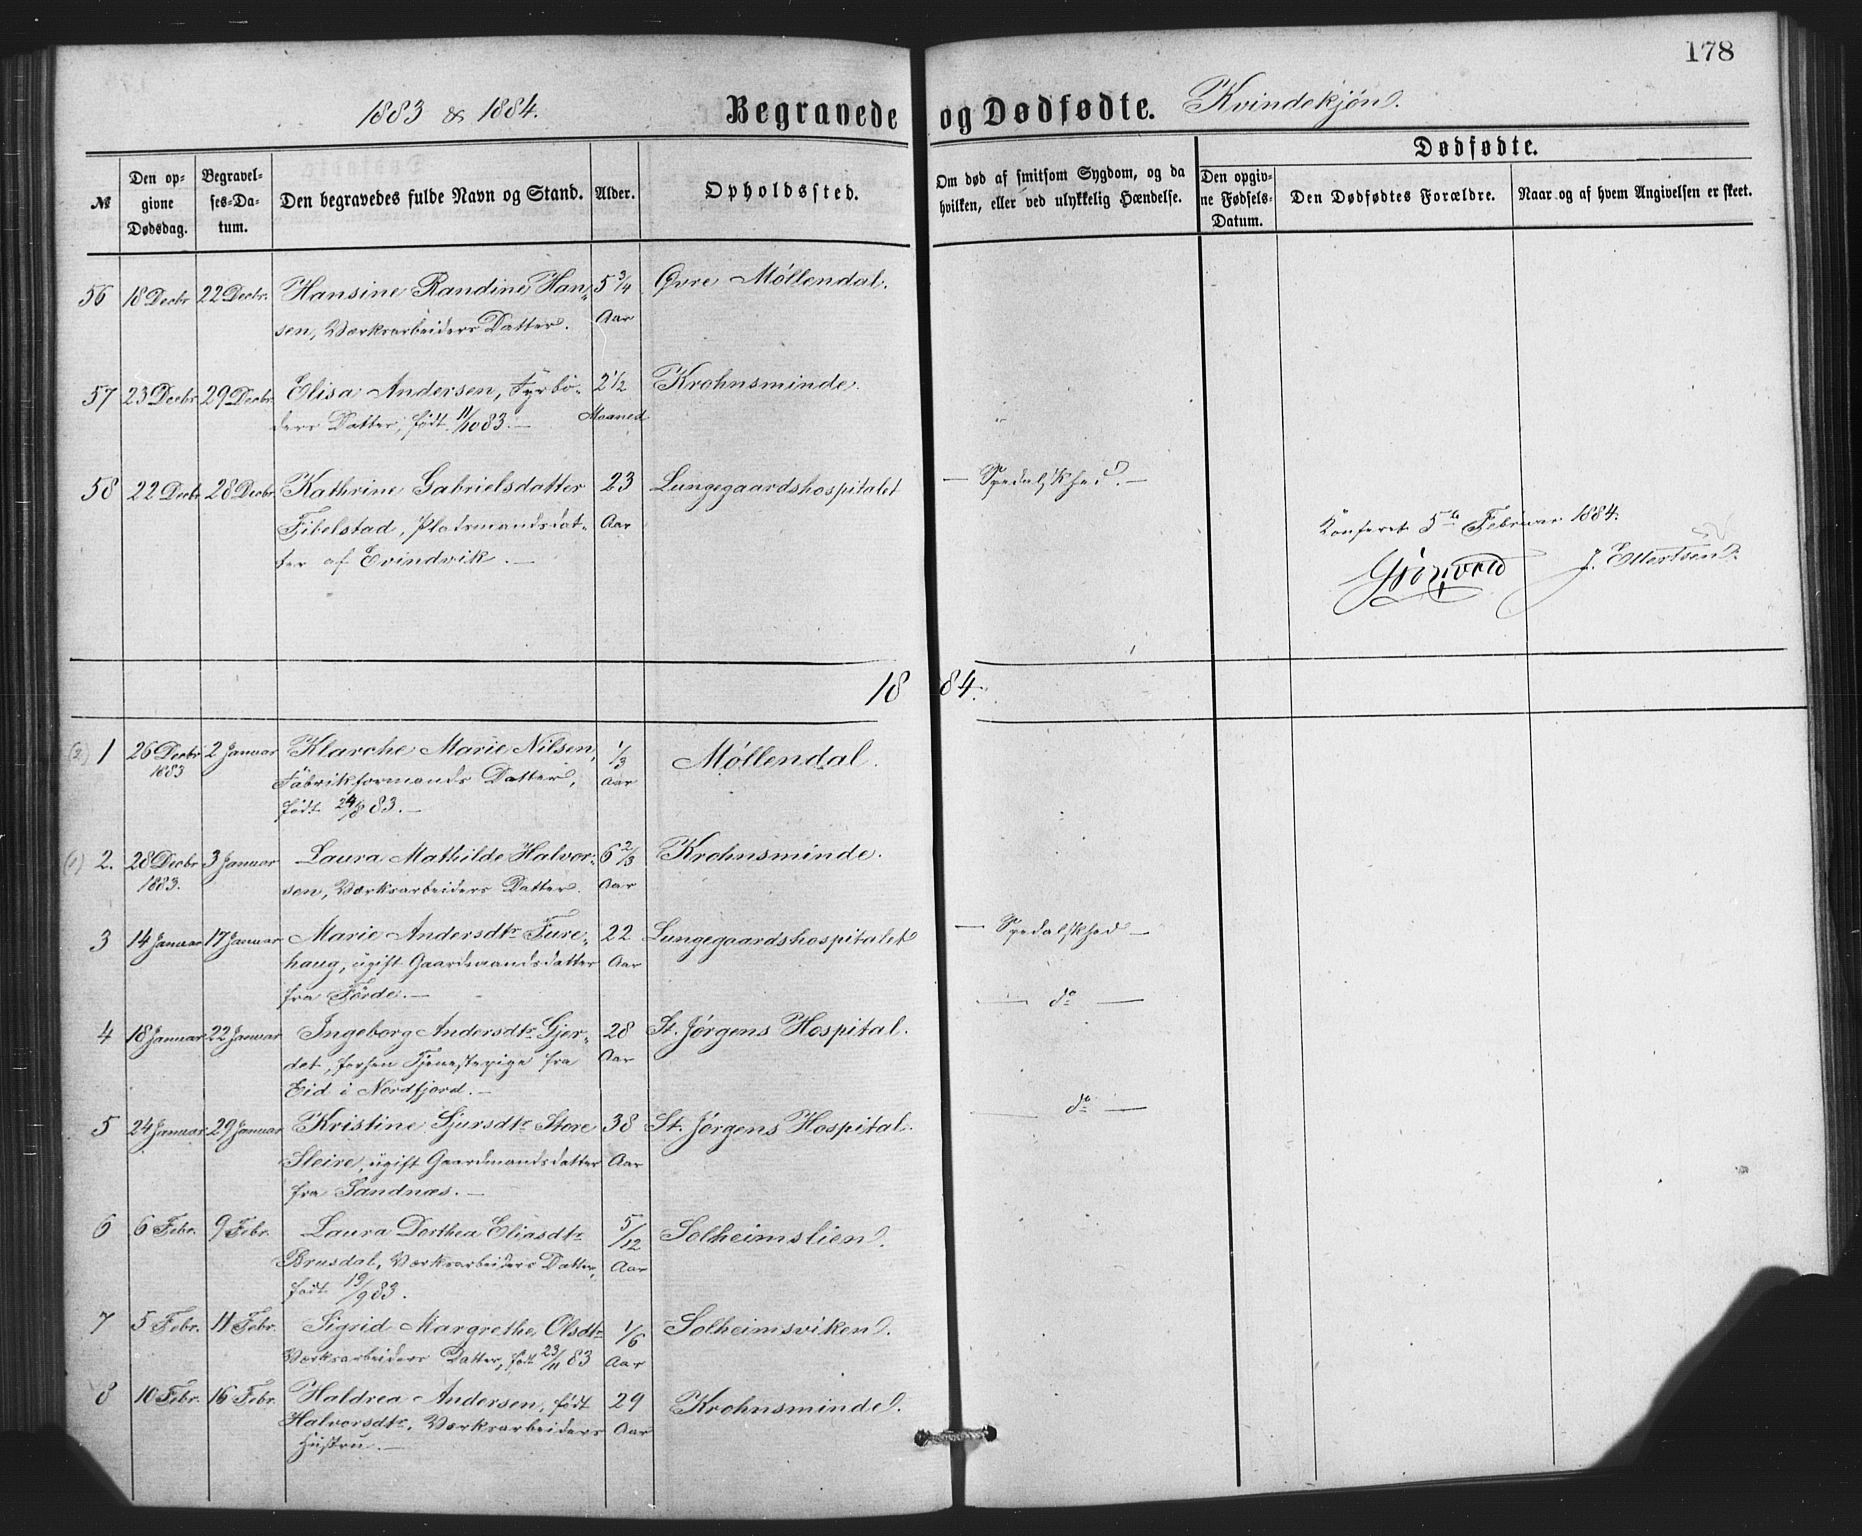 178
1883 & 1884. Begravede og Dødfødte. Kvindekjøn.
№
Den opgivne Dødsdag.
Begravelses-Datum.
Den begravedes fulde Navn og Stand.
Alder.
Opholdssted.
Om død af smitsom Sygdom, og da hvilken, eller ved ulykkelig Hændelse.
Dødfødte.
Den opgivne Fødsels-Datum.
Den Dødfødtes Forældre.
Naar og af hvem Angivelsen er skeet.
56 18 Decbr 22 Decbr. Hansine Randine Han- 5 3/4 Øvre Møllendal.
sen, Værksarbeiders Datter. Aar
57 23 Decbr 29 Decbr Elisa Andersen, Fyrbø- 2 1/2 Krohnsminde.
ders Datter, født 11/10 83. — Maaned
58 22 Decbr 28 Decbr Kathrine Gabrielsdatter 23 Lungegaardshospitalet — Spedalskhed. —
Fibelstad, Pladsmandsdat- Aar
ter af Evindvik. —
Konferet 5te Februar 1884.
J. Ellertsen.
1884.
(2) 1 26 Decbr 2 Januar Klarche Marie Nilsen, 1/3 Møllendal.
1883 Fabrikformands Datter, Aar
født 24/8 83. —
(1) 2. 28 Decbr 3 Januar Laura Mathilde Halvor- 6 2/3 Krohnsminde.
1883. sen, Værksarbeiders Datter. Aar
3 14 Januar 17 Januar Marie Andersdtr Fure- 22 Lungegaardshospitalet — Spedalskhed —
haug, ugift Gaardmandsdatter Aar
fra Førde. —
4 18 Januar 22 Januar Ingeborg Andersdtr Gjer- 28 St. Jørgens Hospital. — do —
det, forhen Tjenestepige fra Aar
Eid i Nordfjord. —
5 24 Januar 29 Januar Kristine Sjursdtr Store 38 St. Jørgens Hospital. — do —
Sleire, ugift Gaardmandsdatter Aar
fra Sandnæs. —
6 6 Febr. 9 Febr. Laura Dorthea Eliasdtr 5/12 Solheimslien.
Brusdal, Værksarbeiders Datter, Aar
født 19/9 83.
7 5 Febr. 11 Febr. Sigrid Margrethe Olsdtr 1/6 Solheimsviken.
Værksarbeiders Datter, født 23/11 83 Aar
8 10 Febr. 16 Febr. Haldrea Andersen, født 29 Krohnsminde.
Halvorsdtr. Værksarbeiders Aar
Hustru. —